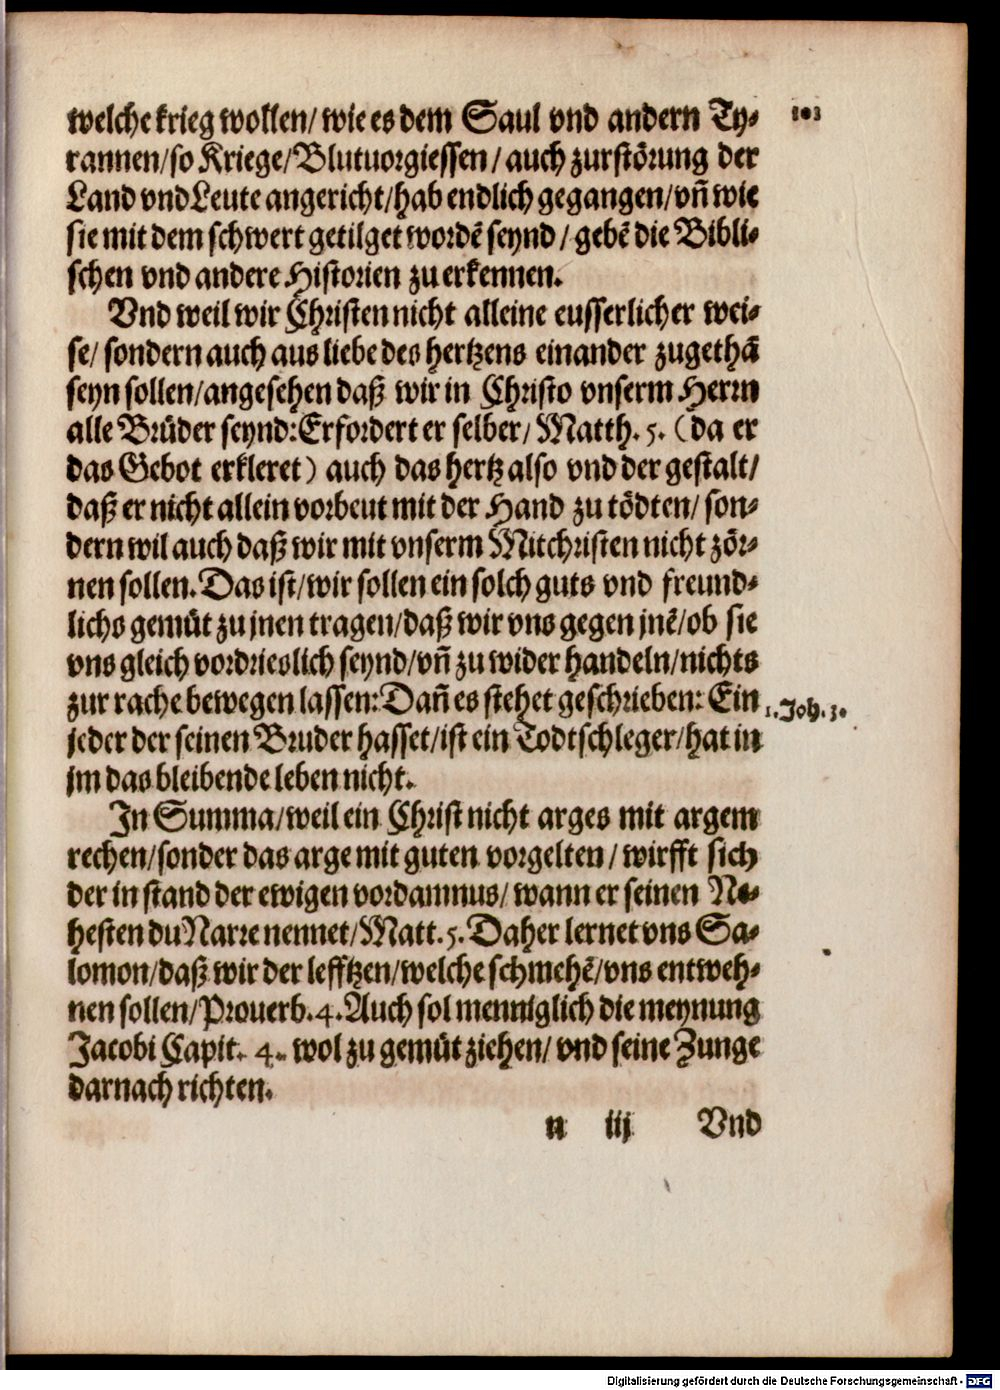 welche krieg wollen/ wie es dem Saul vnd andern Ty⸗
103
rannen/ so Kriege/ Blutuorgiessen/ auch zurstörung der
Land vnd Leute angericht/ hab endlich gegangen/ vñ wie
sie mit dem schwert getilget wordẽ seynd/ gebẽ die Bibli⸗
schen vnd andere Historien zu erkennen.
Vnd weil wir Christen nicht alleine eusserlicher wei⸗
se/ sondern auch aus liebe des hertzens einander zugethã
seyn sollen/ angesehen daß wir in Christo vnserm Herrn
alle Brüder seynd: Erfordert er selber/ Matth. 5. (da er
das Gebot erkleret) auch das hertz also vnd der gestalt/
daß er nicht allein vorbeut mit der Hand zu tödten/ son⸗
dern wil auch daß wir mit vnserm Mitchristen nicht zör⸗
nen sollen. Das ist/ wir sollen ein solch guts vnd freund⸗
lichs gemüt zu jnen tragen/ daß wir vns gegen jnẽ/ ob sie
vns gleich vordrieslich seynd/ vñ zu wider handeln/ nichts
zur rache bewegen lassen: Dañ es stehet geschrieben: Ein
1. Joh. 3.
jeder der seinen Bruder hasset/ ist ein Todtschleger/ hat in
jm das bleibende leben nicht.
In Summa/ weil ein Christ nicht arges mit argem
rechen/ sonder das arge mit guten vorgelten/ wirfft sich
der in stand der ewigen vordamnus/ wann er seinen Ne⸗
hesten du Narre nennet/ Matt. 5. Daher lernet vns Sa⸗
lomon/ daß wir der lefftzen/ welche schmehẽ/ vns entweh⸗
nen sollen/ Prouerb. 4. Auch sol menniglich die meynung
Jacobi Capit. 4. wol zu gemüt ziehen/ vnd seine Zunge
darnach richten.
n iij Vnd
Digitalisierung gefördert durch die Deutsche Forschungsgemeinschaft - DFG